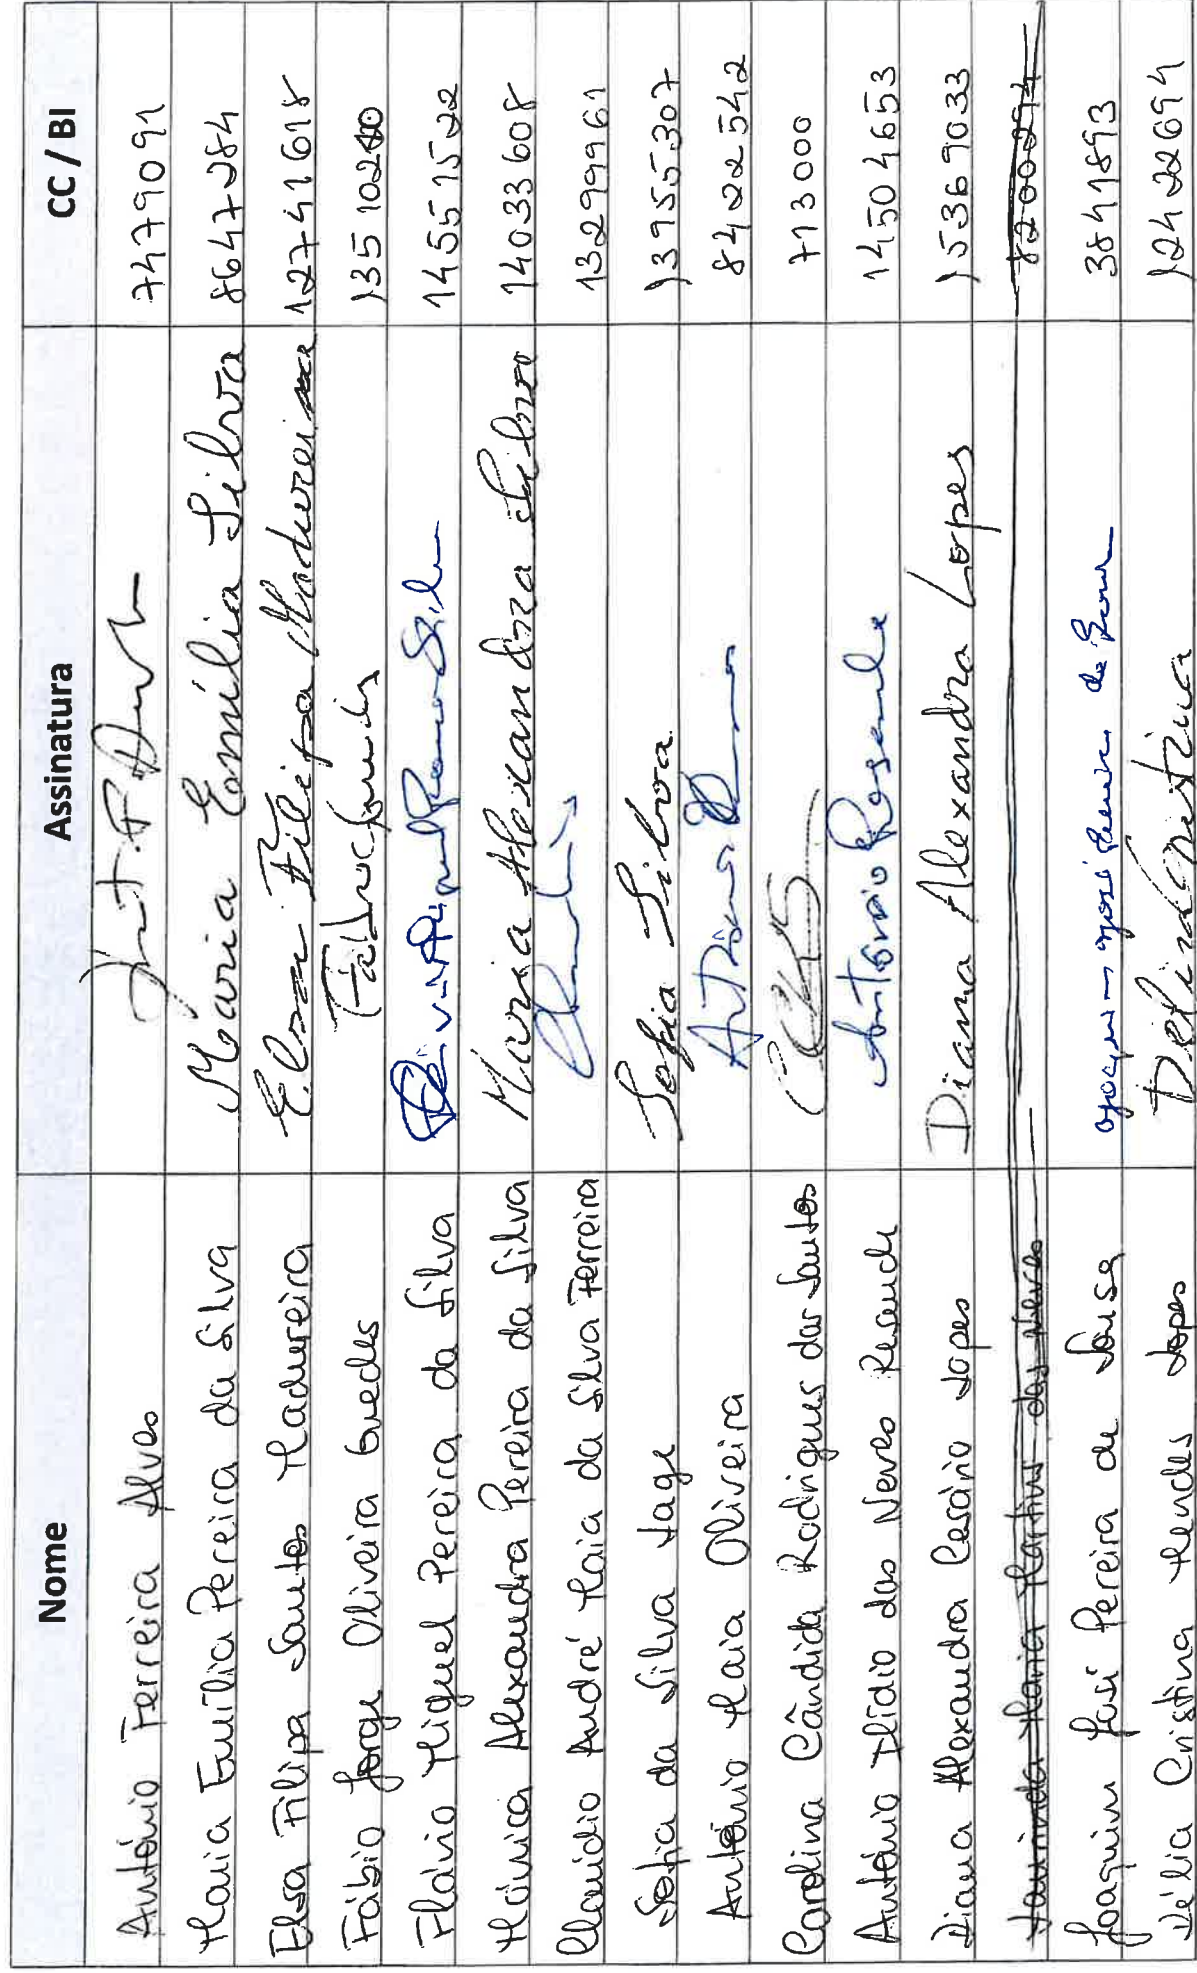 Nome Assinatura CC / BI
António Ferreira Alves 7479091
Maria Emília Pereira da Silva Maria Emília Silva 8647284
Elsa Filipa Santos Madureira Elsa Filipa Madureira 12741618
Fábio Jorge Oliveira Guedes Fábio Guedes
Flávio Miguel Pereira da Silva 14551522
Mónica Alexandra Pereira da Silva Alexandra Silva 14033608
Claúdio André Maia da Silva Ferreira 13299961
Sofia da Silva Lage Sofia Silva 13955307
António Maia Oliveira António 8422542
Carolina Cândida Rodrigues dos Santos 713000
António Ilídio das Neves Resende António Resende 14504653
Diana Alexandra Cesário Lopes Diana Alexandra Lopes 15369033
Laurinda Maria Martins das Neves 8200294
Joaquim José Pereira de Sousa Joaquim José Pereira de Sousa 3841893
Délia Cristina Mendes Lopes Délia Cristina 12422694